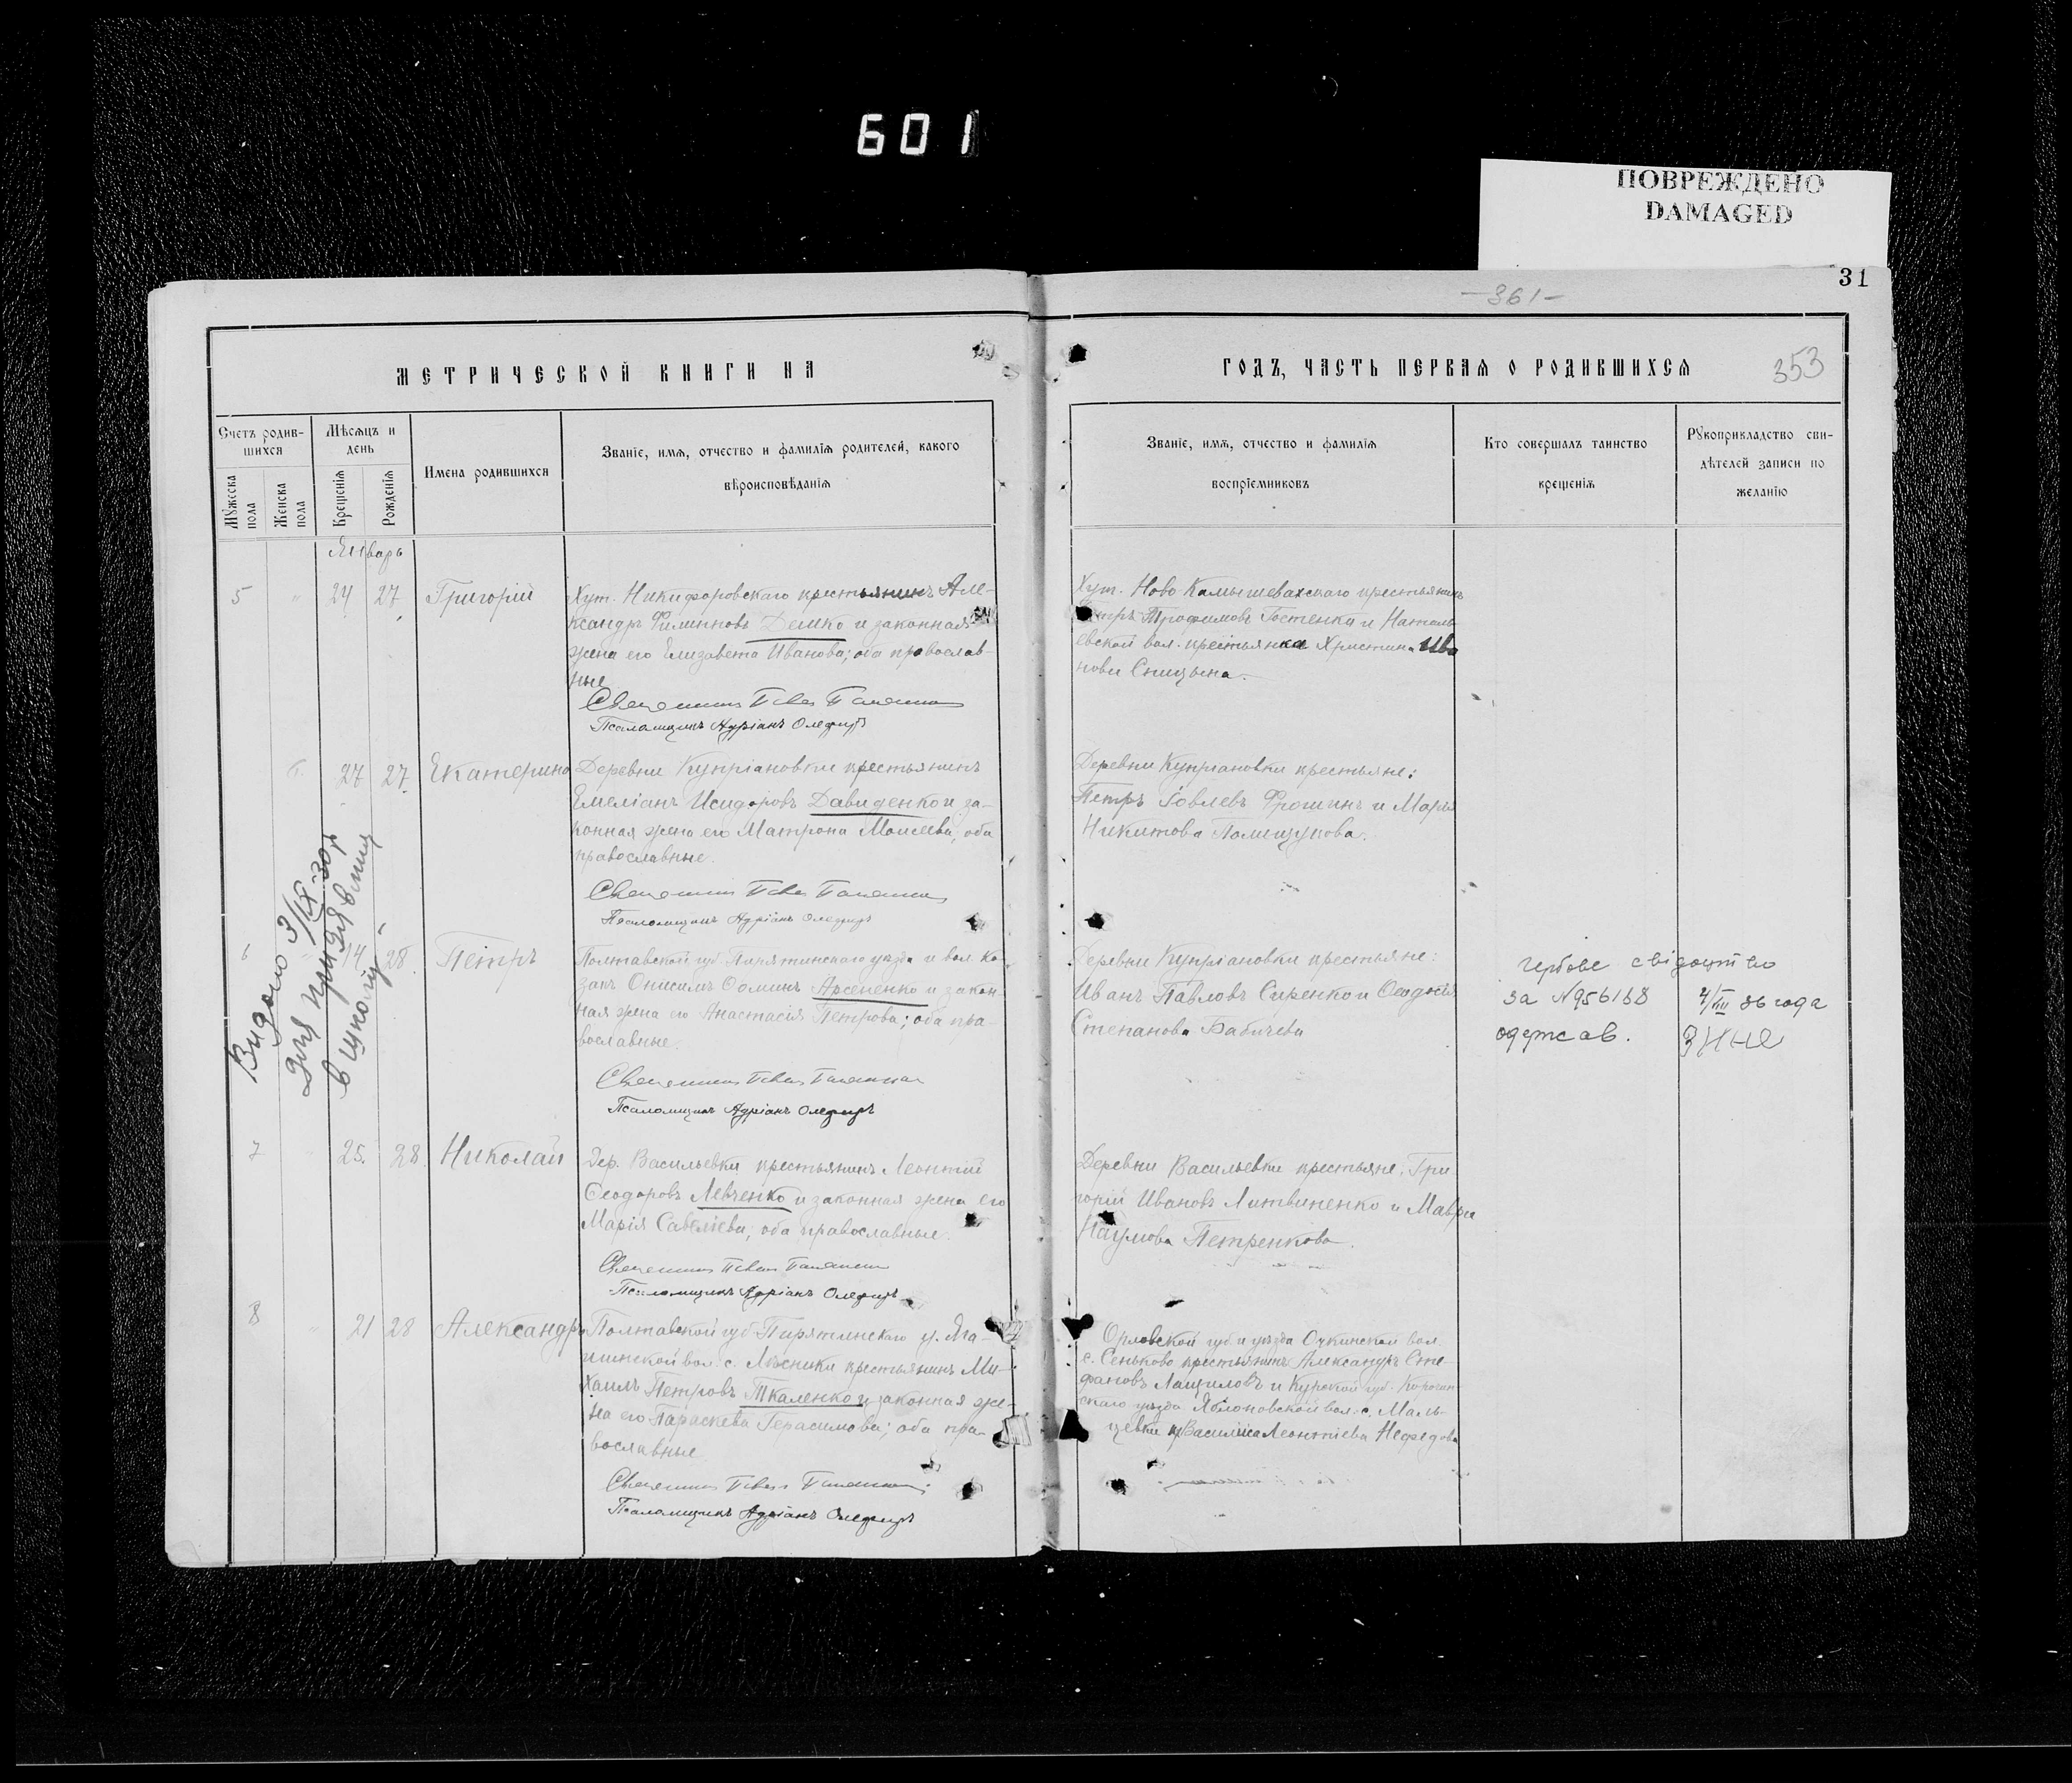 601
ПОВРЕЖДЕНО
DAMAGED
31
-361-
353
МЕТРИЧЕСКОЙ КНИГИ НА
ГОДЪ, ЧАСТЬ ПЕРВАЯ О РОДИВШИХСЯ
Счетъ родив-
шихся
Мужеска пола
Женска пола
Мѣсяцъ и
день
Крещенія
Рожденія
Имена родившихся
Званіе, имя, отчество и фамилія родителей, какого
вѣроисповѣданія
Званіе, имя, отчество и фамилія
воспріемниковъ
Кто совершалъ таинство
крещенія
Рукоприкладство сви-
дѣтелей записи по
желанію
Январь
5 " 24 27 Григорій
Хут. Никифоровскаго крестьянинъ Але-
ксандръ Филиповъ Демко и законная
жена его Елизавета Иванова; оба православ-
ные
Священникъ
Псаломщикъ Адріанъ Олефиръ
Хут. Ново Камышевахскаго крестьянинъ
Петръ Трофимовъ Гостенко и Наталь-
евской вол. крестьянка Христина Ива
нова Спицына.
27 27 Екатерина
Деревни Купріановки крестьянинъ
Емеліанъ Исидоровъ Давиденко и за-
конная жена его Матрона Моисеева; оба
православные.
Священникъ
Псаломщикъ Адріанъ Олефиръ
Деревни Купріановки крестьяне:
Петръ Іовлевъ и Марія
Никитова Полищукова.
6 " 14 28 Петръ
Полтавской губ. Пирятинскаго уѣзда и вол. ко-
закъ Онисимъ Ѳоминъ Арсененко и закон-
ная жена его Анастасія Петрова; оба пра-
вославные.
Священникъ
Псаломщикъ Адріанъ Олефиръ
Деревни Купріановки крестьяне:
Иванъ Павловъ Сиренко и Ѳеодосія
Степанова Бабичева
гербове свідоцтво
за №956168 4/VIII 36 года
одержав.
Видано 3/IX-30 р
для
в школу
7 " 25. 28. Николай
Дер. Васильевки крестьянинъ Леонтій
Ѳеодоровъ Левченко и законная жена его
Марія Савеліева; оба православные.
Священникъ
Псаломщикъ Адріанъ Олефиръ
Деревни Васильевки крестьяне: Гри-
горій Ивановъ Литвиненко и Мавра
Наумова Петренкова.
8 " 21 28 Александръ
Полтавской губ. Пирятинскаго у.
вол. с. Лѣсники крестьянинъ Ми-
хаилъ Петровъ Ткаленко и законная же-
на его Параскева Герасимова; оба пра-
вославные
Священникъ
Псаломщикъ Адріанъ Олефиръ
Орловской губ. и уѣзда вол.
с. Сеньково крестьянинъ Александръ Сте-
фановъ Лащиловъ и Курской губ. Корочан-
скаго уѣзда Яблоновской вол. с. Маль-
цевки Леонтіева Нефедова